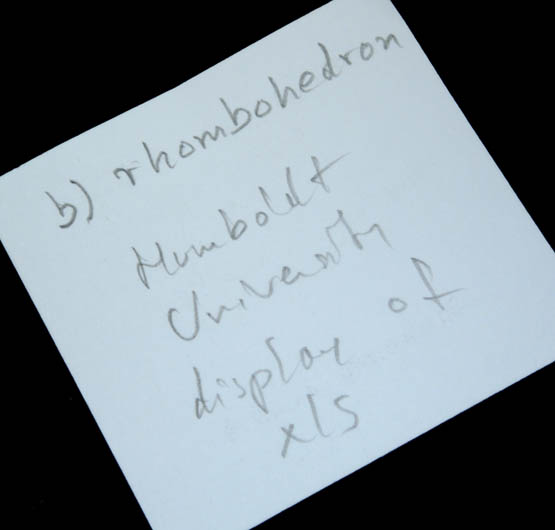 b) rhombohedron
Humboldt
University
display of
xls